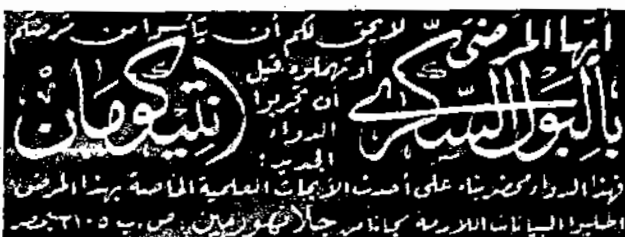 أيها المرضى
بالبول السكرى
لا يحق لكم أن تيأسوا من مرضكم
أو تهملوه قبل
أن تجربوا
الدواء
الجديد:
(انتيكومان)
فهذا الدواء محضر بناء على أحدث الأبحاث العلمية الخاصة بهذا المرض
اطلبوا البيانات اللازمة مجانا من جلانهورمين ص.ب ٢١٠٥ مصر